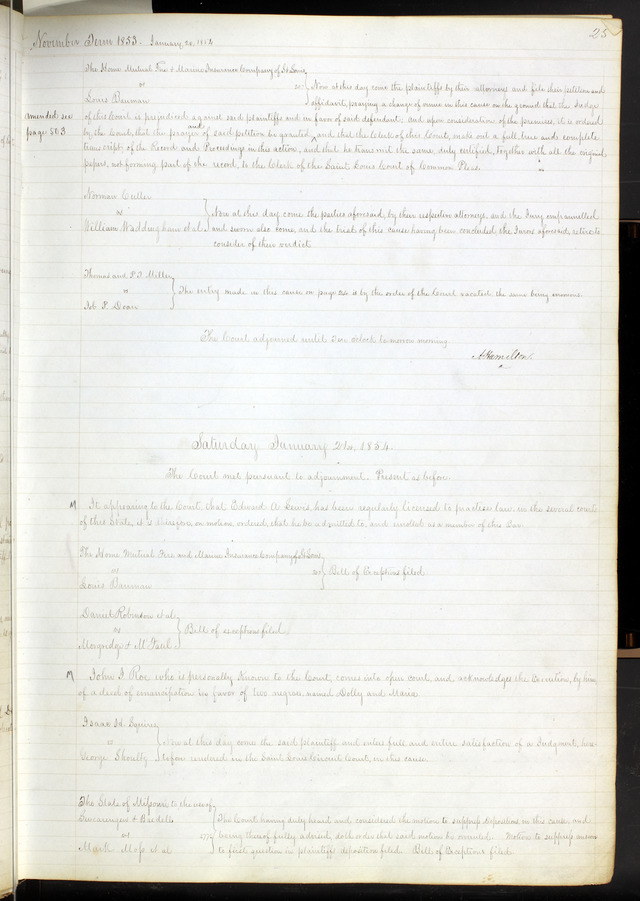 25
November Term 1853. January 20, 1854
The Home Mutual Fire & Marine Insurance Company of St Louis
vs Now at this day come the plaintiffs by their attorneys and file their petition and
Louis Bauman affidavit, praying a change of venue in this cause on the ground that the Judge
amended see page 503
of this Court is prejudiced against said plaintiffs and in favor of said defendant. And upon consideration of the premises, it is ordered
by the Court, that the prayer of said petition be granted, and that the Clerk of this Court, make out a full, true and complete
and
transcript of the Record and Proceedings in this action, and that he transmit the same duly certified, together with all the original
papers, not forming part of the record, to the Clerk of the Saint Louis Court of Common Pleas.
Norman Cutter
vs Now at this day come the parties aforesaid, by their respective attorneys, and the Jury empannelled
William Waddingham et al and sworn also come, and the trial of this cause having been concluded, the Jurors aforesaid, retire to
consider of their verdict
Thomas and P.T. Miller
vs The entry made in this cause on page 24 is by the order of the Court vacated the same being erroneous
Job P. Dean
The Court adjourned until ten oclock tomorrow morning
A Hamilton.
Saturday January 21st, 1854.
The Court met pursuant to adjournment. Present as before.
M It appearing to the Court, that Edward A. Lewis has been regularly licensed to practise law in the several courts
of this State, it is therefore, on motion, ordered, that he be admitted to, and enrolled as a member of this Bar.
The Home Mutual Fire and Marine Insurance Company of St Louis
vs Bill of Exceptions filed
Louis Bauman
Daniel Robinson et al
vs Bill of exceptions filed
M John J. Roe who is personally known to the Court, comes into open court, and acknowledges the Execution, by him,
of a deed of emancipation in favor of two negroes named Dolly and Maria
Isaac H. Squire
vs Now at this day comes the said plaintiff and enters full and entire satisfaction of a Judgment, here-
George Shoultz tofore rendered in the Saint Louis Circuit Court, in this cause.
The State of Missouri to the use of
& Bedell The Court having duly heard and considered the motion to suppress depositions in this cause, and
vs being thereof fully advised, doth order that said motion be overruled. Motion to suppress answer
Mark to first question in plaintiffs deposition filed Bill of Exceptions filed